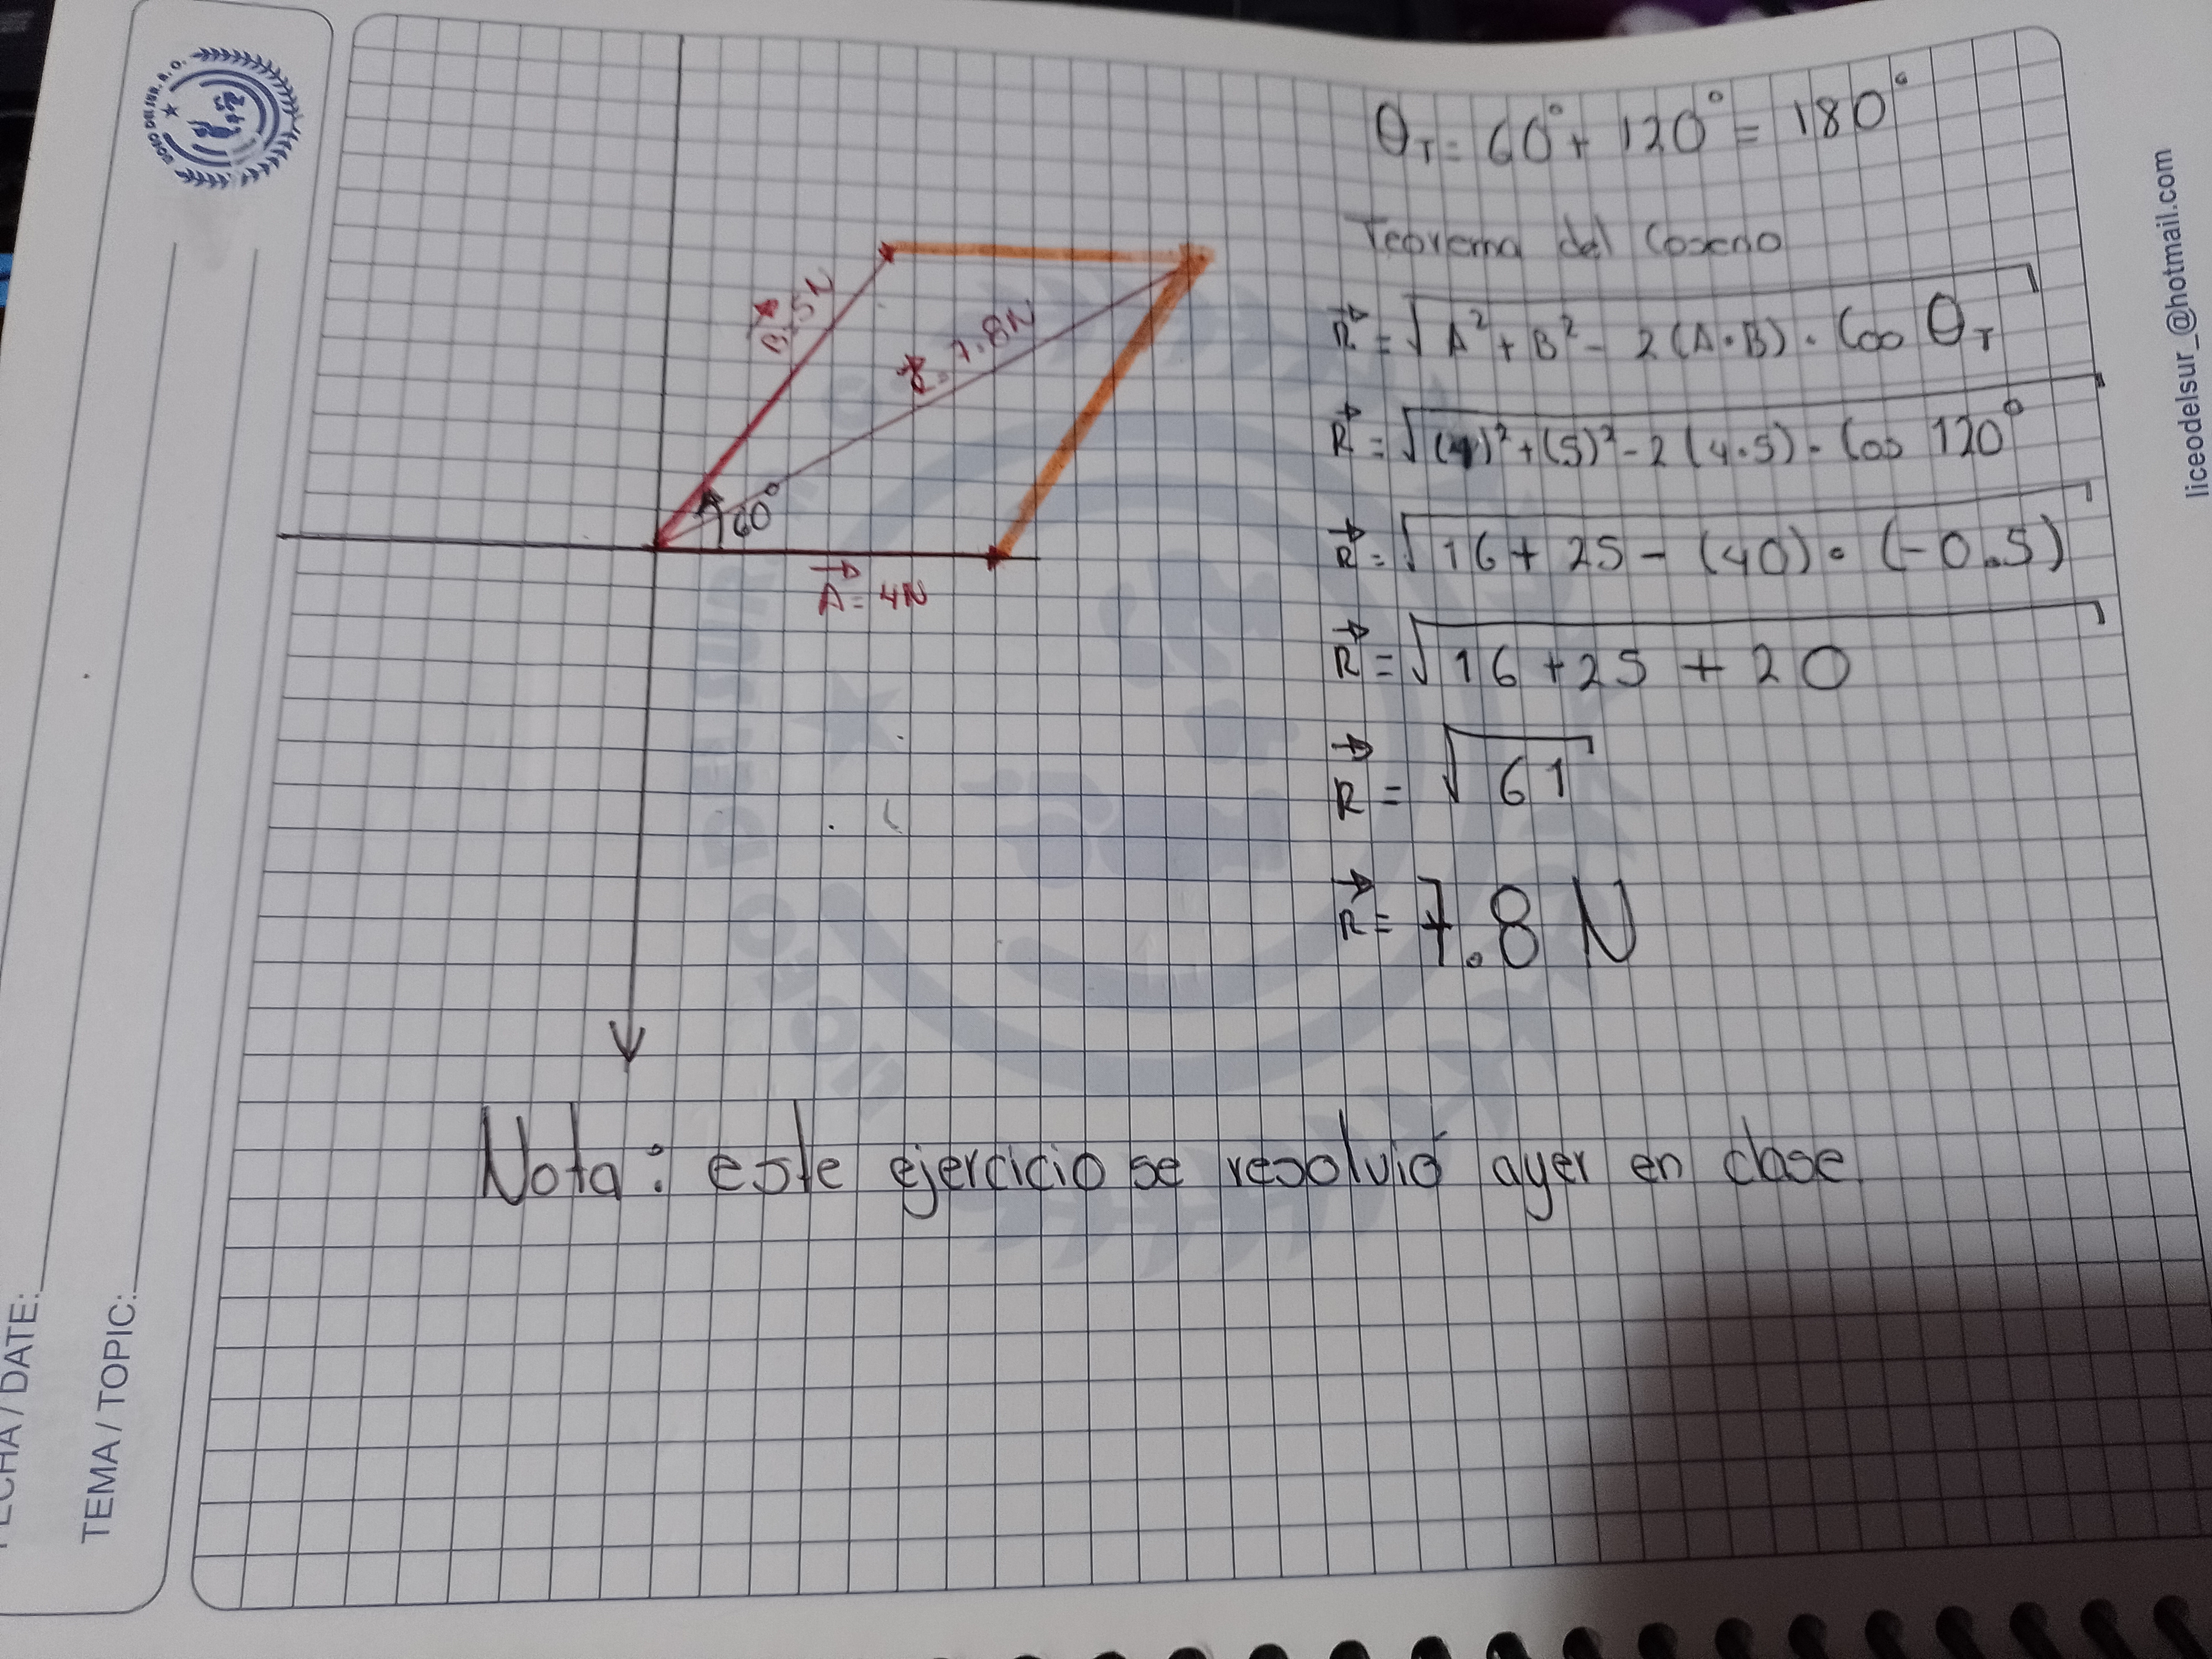 θT = 60° + 120° = 180°
Teorema del Coseno
R = √A² + B² - 2(A·B) · Cos θT
R = √(4)² + (5)² - 2(4·5) · Cos 120°
R = √16 + 25 - (40) · (-0.5)
R = √16 + 25 + 20
R = √61
R = 7.8 N
B = 5N
R = 7.8N
60°
A = 4N
Nota: este ejercicio se resolvió ayer en clase
FECHA / DATE:
TEMA / TOPIC:
liceodelsur_@hotmail.com